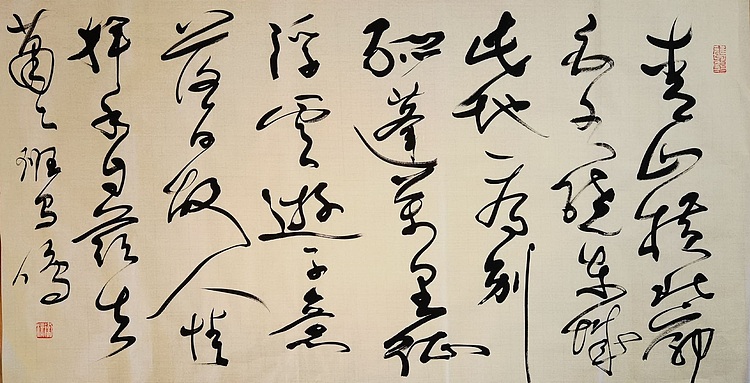 青山橫北郭
白水繞東城
此地一為別
孤蓬萬里征
浮雲遊子意
落日故人情
揮手自茲去
蕭々班馬鳴